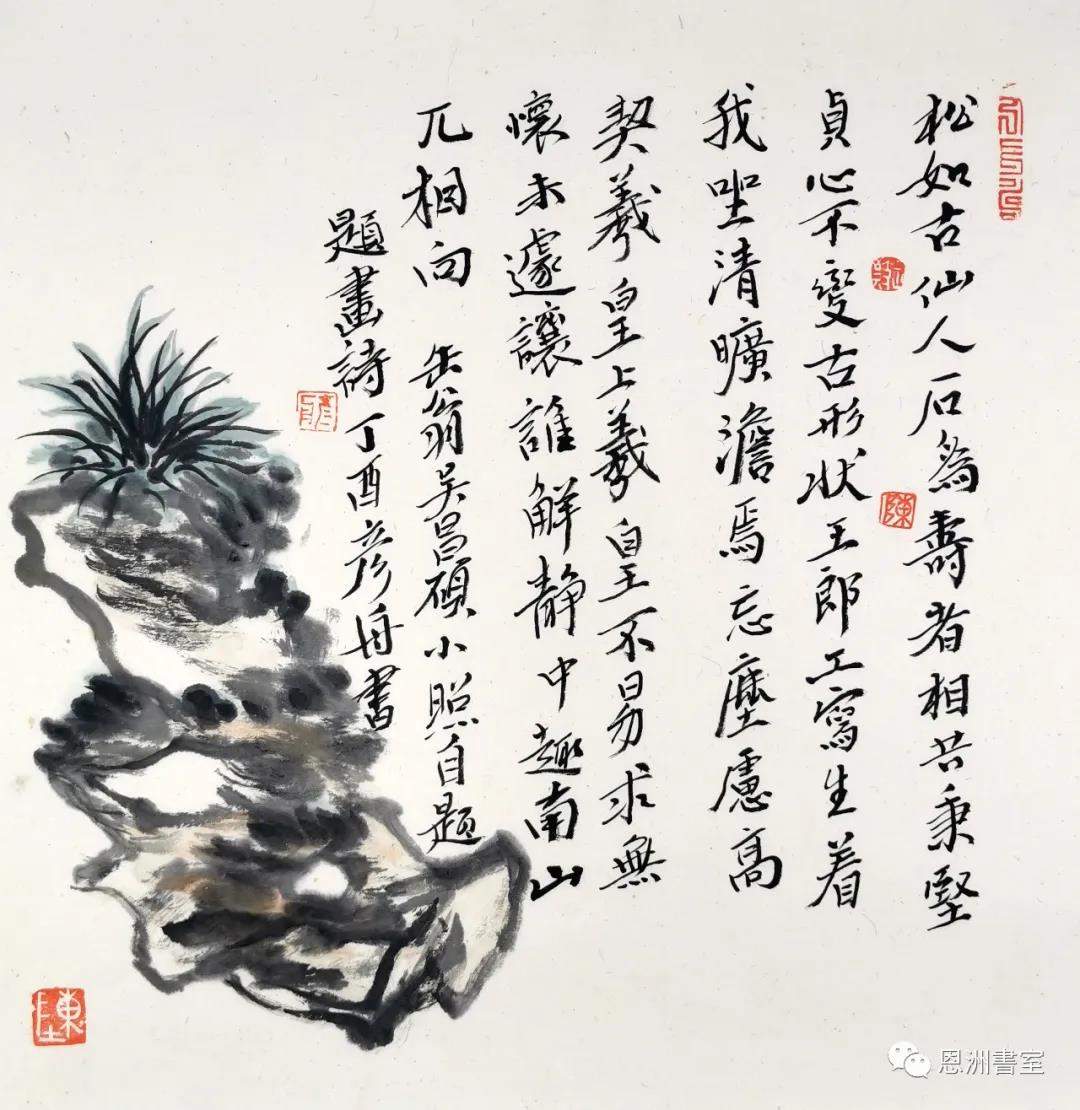 松如古仙人石為壽者相共秉堅
貞心不變古形狀王郎工寫生着
我坐清曠澹焉忘塵慮高
契羲皇上羲皇不易求無
懷未遽讓誰解靜中趣南山
兀相向 缶翁吳昌碩小照自題
題畫詩丁酉彥舟書
陳
恩洲書室